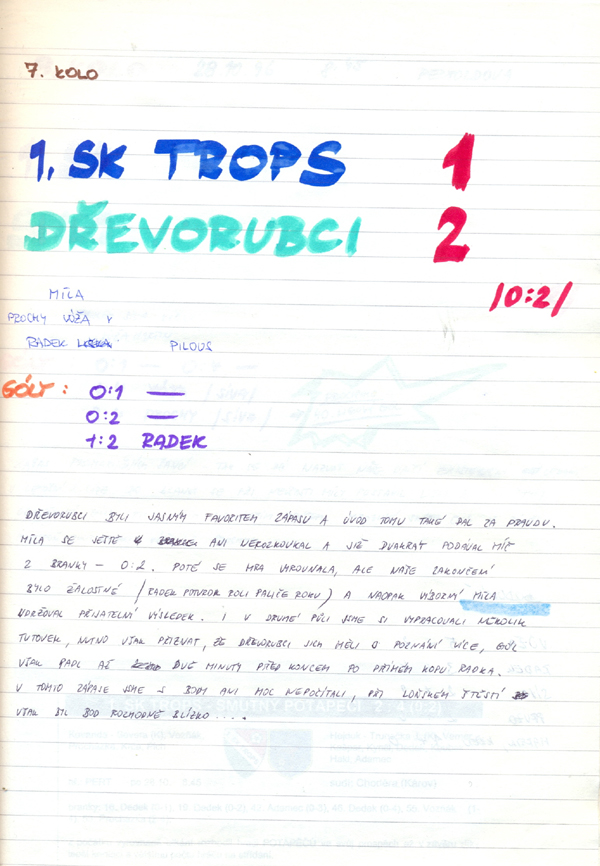 7. KOLO
1. SK TROPS 1
DŘEVORUBCI 2
/0:2/
MÍLA
PROCHY VÓŽA V
RADEK PILOUS
GÓLY: 0:1 —
0:2 —
1:2 RADEK
DŘEVORUBCI BYLI JASNÝM FAVORITEM ZÁPASU A ÚVOD TOMU TAKÉ DAL ZA PRAVDU.
MÍLA SE JEŠTĚ ANI NEROZKOUKAL A JIŽ DVAKRÁT PODÁVAL MÍČ
Z BRANKY – 0:2. POTÉ SE HRA VYROVNALA, ALE NAŠE ZAKONČENÍ
BYLO ŽALOSTNÉ (RADEK POTVRDIL ROLI PALIČE ROKU) A NAOPAK VÝBORNÝ MÍLA
UDRŽOVAL PŘIJATELNÝ VÝSLEDEK. I V DRUHÉ PŮLI JSME SI VYPRACOVALI NĚKOLIK
TUTOVEK, NUTNO VŠAK PŘIZNAT, ŽE DŘEVORUBCI JICH MĚLI O POZNÁNÍ VÍCE, GÓL
VŠAK PADL AŽ DVĚ MINUTY PŘED KONCEM PO PŘÍMÉM KOPU RADKA.
V TOMTO ZÁPASE JSME S BODY ANI MOC NEPOČÍTALI, PŘI LOŇSKÉM VÍTĚZI
VŠAK BYL BOD ROZHODNĚ BLÍZKO....
1. SK TROPS - SMUTNÝ POTÁPĚČI 2 : 4 (0:2)